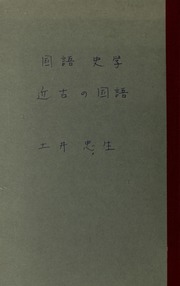 国語史学
近古の国語
土井忠生